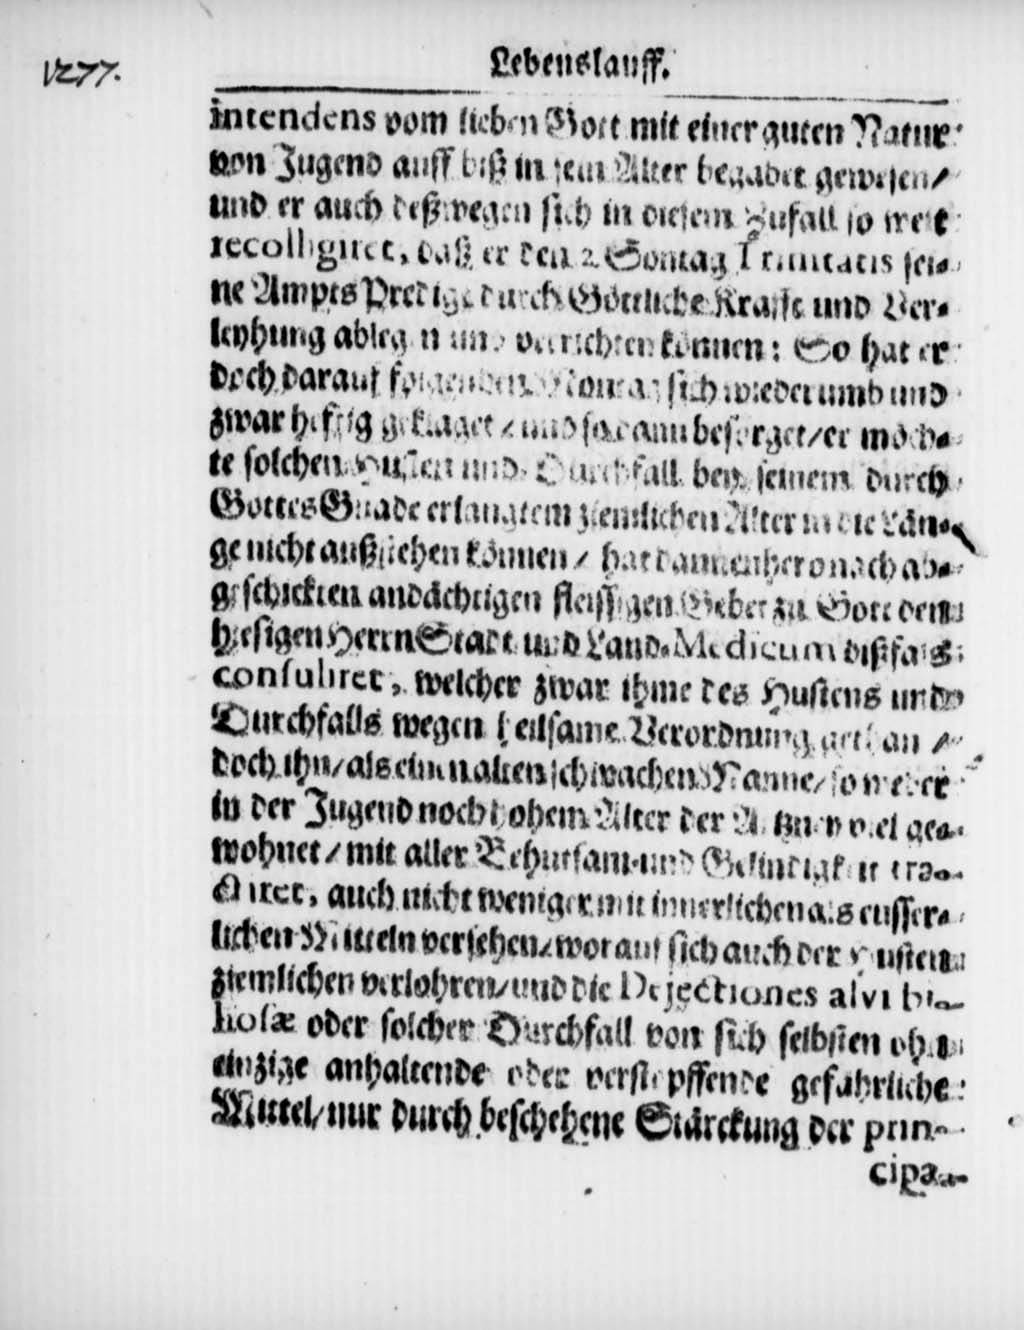 1277.
Lebenslauff.
intendens vom lieben Gott mit einer guten Natur
von Jugend auff biß in sein Alter begabet gewesen/
und er auch deßwegen sich in diesem Zufall so weit
recolligiret, daß er den 2. Sontag Trinitatis sei-
ne Ampts Predigt durch Göttliche Krafft und Ver-
leyhung ablegen und verrichten können: So hat er
doch darauf folgenden Montag sich wiederumb und
zwar hefftig geklaget / und sodann besorget/er möch-
te solchen Husten und Durchfall bey seinem durch
Gottes Gnade erlangtem ziemlichen Alter in die Län-
ge nicht außstehen können / hat dannenhero nach ab-
geschickten andächtigen fleissigen Gebet zu Gott dem
hiesigen Herrn Stadt und Land-Medicum dißfals
consuliret, welcher zwar ihme des Hustens und
Durchfalls wegen heilsame Verordnung gethan /
doch ihn/als einen alten schwachen Manne/so weder
in der Jugend noch hohem Alter der Artzney viel ge-
wohnet / mit aller Behutsam-und Gelindigkeit tra-
ctiret, auch nicht weniger mit innerlichen als eusser-
lichen Mitteln versehen/worauf sich auch der Husten
ziemlichen verlohren/und die Dejectiones alvi bi-
liosæ oder solcher Durchfall von sich selbsten ohn
einzige anhaltende oder verstopffende gefährliche
Mittel/nur durch beschehene Stärckung der prin-
cipa-